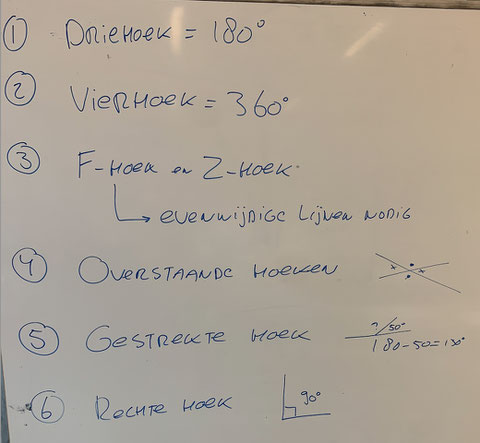 ① DRIEHOEK = 180°
② VIERHOEK = 360°
③ F-HOEK en Z-HOEK
↳ EVENWIJDIGE LIJNEN NODIG
④ OVERSTAANDE HOEKEN x x
⑤ GESTREKTE HOEK ?/50°
180-50=130°
⑥ RECHTE HOEK 90°